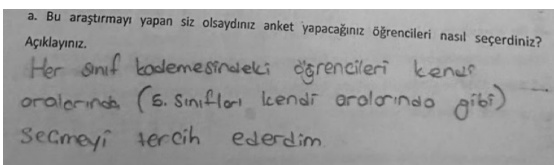 a. Bu araştırmayı yapan siz olsaydınız anket yapacağınız öğrencileri nasıl seçerdiniz?
Açıklayınız.
Her sınıf kademesindeki öğrencileri kendi
aralarında (5. sınıfları kendi aralarında gibi)
seçmeyi tercih ederdim